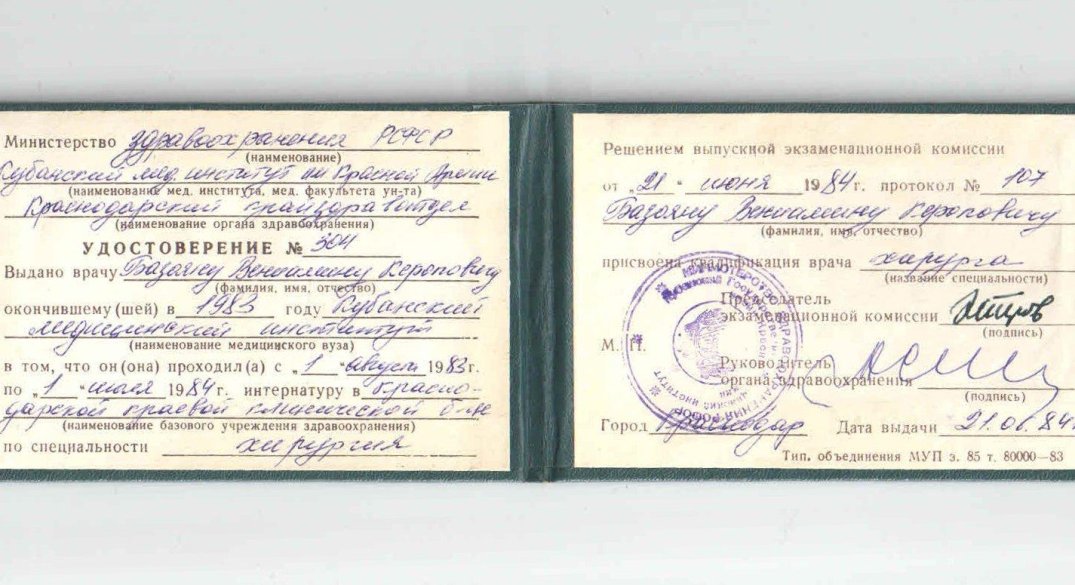 Министерство здравоохранения РСФСР
(наименование)
Кубанский мед. институт им Красной Армии
(наименование мед. института, мед. факультета ун-та)
Краснодарский крайздравотдел
(наименование органа здравоохранения)
УДОСТОВЕРЕНИЕ № 304
Выдано врачу Базояну Вениамину Кероповичу
(фамилия, имя, отчество)
окончившему (шей) в 1983 году Кубанский
медицинский институт
(наименование медицинского вуза)
в том, что он (она) проходил (а) с „1 " август 1983 г.
по „1 " июля 1984 г. интернатуру в Красно-
дарской краевой клинической б-це
(наименование базового учреждения здравоохранения)
по специальности хирургия
Решением выпускной экзаменационной комиссии
от „21 " июня 1984 г. протокол № 107
Базояну Вениамину Кероповичу
(фамилия, имя, отчество)
присвоена квалификация врача хирурга
(название специальности)
Председатель
экзаменационной комиссии
(подпись)
М. П.
Руководитель
органа здравоохранения
(подпись)
Город Краснодар Дата выдачи 21.06.84г
Тип. объединения МУП з. 85 т. 80000—83